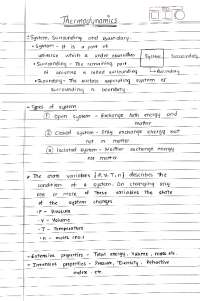 Thermodynamics
System, Surrounding and Boundary.
System - It is a part of
universe which is under observation
System Surrounding
Surrounding - The remaining part
of universe is called surrounding
Boundary
Boundary - The surface separating system &
surrounding is boundary.
Types of system
① Open system - Exchange both energy and
matter
② Closed system - Only exchange energy but
not in matter
③ Isolated system - Neither exchange energy
not matter
The state variables (P, V, T, n) describes the
condition of a system. On changing any
one or more of these variables the state
of the system changes
P - Pressure
V - Volume
T - Temperature
n - moles (no.)
Extensive properties - Total energy, volume, mass etc.
Intensive properties - Pressure, Density, Refractive
index etc.